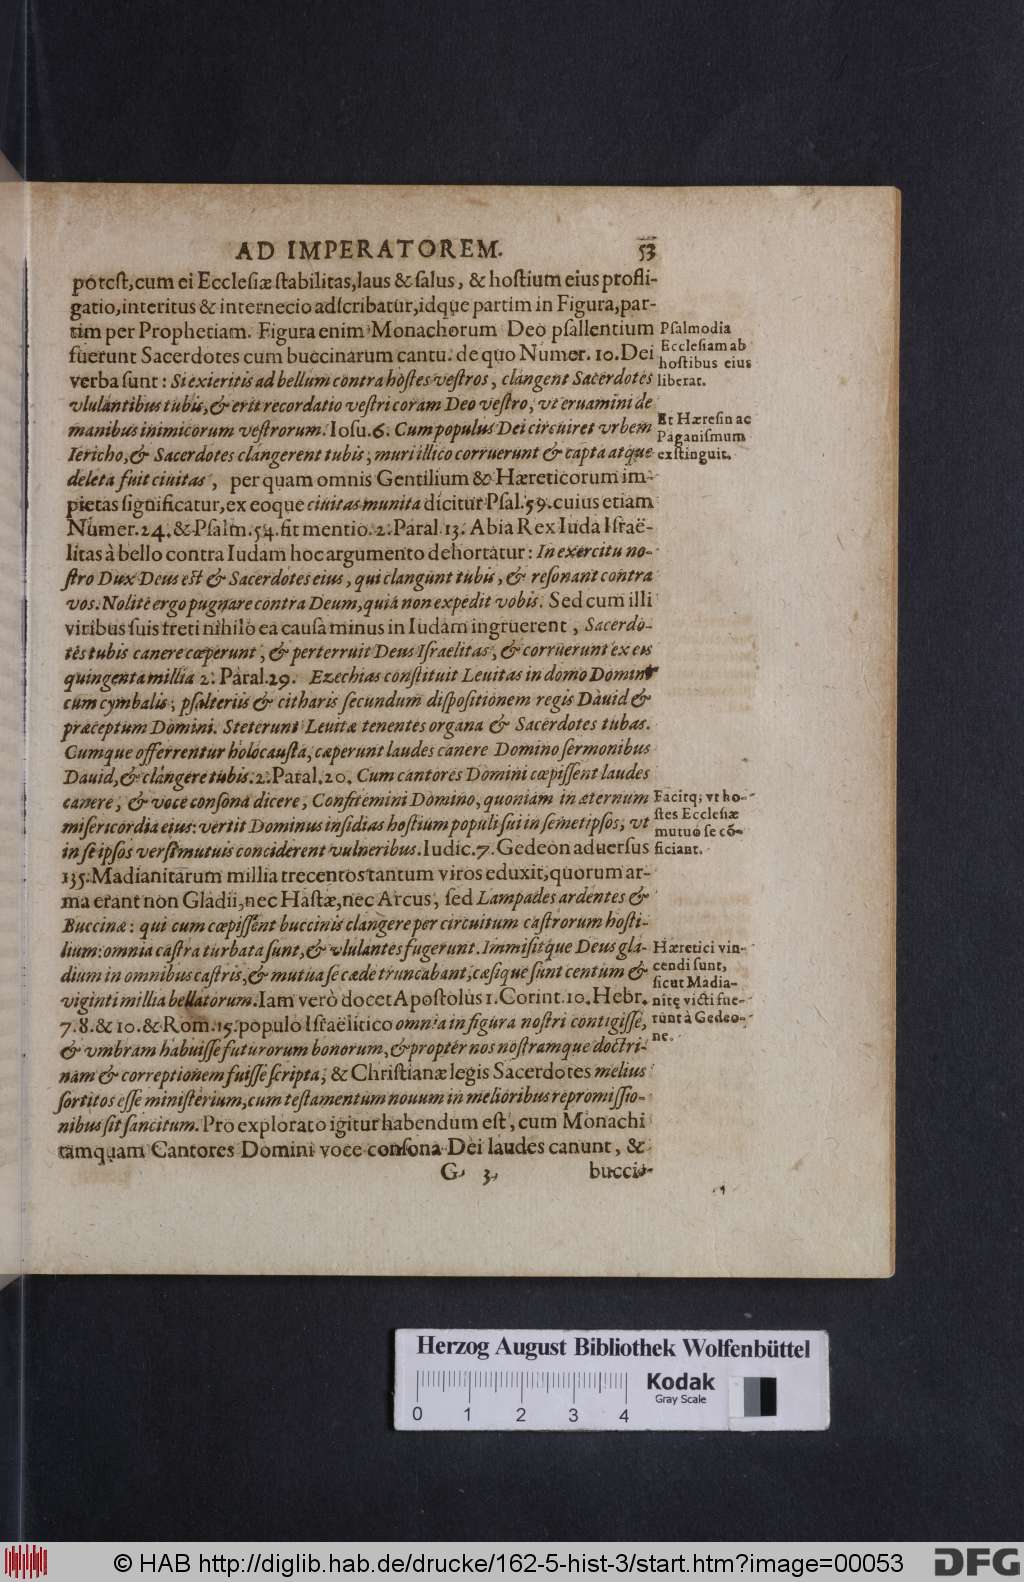 AD IMPERATOREM. 53
poteſt, cum ei Eccleſiæ ſtabilitas, laus & ſalus, & hoſtium eius profli-
gatio, interitus & internecio adſcribatur, idque partim in Figura, par-
tim per Prophetiam. Figura enim Monachorum Deo pſallentium
fuerunt Sacerdotes cum buccinarum cantu. de quo Numer. 10. Dei
verba ſunt: Si exieritis ad bellum contra hoſtes veſtros, clangent Sacerdotes
vlulantibus tubis, & erit recordatio veſtri coram Deo veſtro, vt eruamini de
manibus inimicorum veſtrorum. Ioſu. 6. Cum populus Dei circuiret vrbem
Iericho, & Sacerdotes clangerent tubis, muri illico corruerunt & capta atque
deleta fuit ciuitas, per quam omnis Gentilium & Hæreticorum im-
pietas ſignificatur, ex eoque ciuitas munita dicitur Pſal. 59. cuius etiam
Numer. 24. & Pſalm. 54. fit mentio. 2. Paral. 13. Abia Rex Iuda Iſraë-
litas à bello contra Iudam hoc argumento dehortatur: In exercitu no-
ſtro Dux Deus eſt & Sacerdotes eius, qui clangunt tubis, & reſonant contra
vos. Nolite ergo pugnare contra Deum, quia non expedit vobis. Sed cum illi
viribus ſuis freti nihilo ea cauſa minus in Iudam ingruerent, Sacerdo-
tes tubis canere cœperunt, & perterruit Deus Iſraelitas, & corruerunt ex eis
quingenta millia 2. Paral. 29. Ezechias conſtituit Leuitas in domo Domini
cum cymbalis, pſalteriis & citharis ſecundum diſpoſitionem regis Dauid &
præceptum Domini. Steterunt Leuitæ tenentes organa & Sacerdotes tubas.
Cumque offerrentur holocauſta, cœperunt laudes canere Domino ſermonibus
Dauid, & clangere tubis. 2. Paral. 20. Cum cantores Domini cœpiſſent laudes
canere, & voce conſona dicere, Confitemini Domino, quoniam in æternum
miſericordia eius: vertit Dominus inſidias hoſtium populi ſui in ſemetipſos, vt
in ſe ipſos verſi mutuis conciderent vulneribus. Iudic. 7. Gedeon aduerſus
135. Madianitarum millia trecentos tantum viros eduxit, quorum ar-
ma erant non Gladii, nec Haſtæ, nec Arcus, ſed Lampades ardentes &
Buccinæ: qui cum cœpiſſent buccinis clangere per circuitum caſtrorum hoſti-
lium: omnia caſtra turbata ſunt, & vlulantes fugerunt. Immiſitque Deus gla-
dium in omnibus caſtris, & mutua ſe cæde truncabant, cæſique ſunt centum &
viginti millia bellatorum. Iam verò docet Apoſtolus 1. Corint. 10. Hebr.
7. 8. & 10. & Rom. 15. populo Iſraëlitico omnia in figura noſtri contigiſſe,
& vmbram habuiſſe futurorum bonorum, & propter nos noſtramque doctri-
nam & correptionem fuiſſe ſcripta, & Chriſtianæ legis Sacerdotes melius
ſortitos eſſe miniſterium, cum teſtamentum nouum in melioribus repromiſſio-
nibus ſit ſancitum. Pro explorato igitur habendum eſt, cum Monachi
tamquam Cantores Domini voce conſona Dei laudes canunt, &
G 3 bucci-
Pſalmodia
Eccleſiam ab
hoſtibus eius
liberat.
Et Hæreſin ac
Paganiſmum
exſtinguit.
Facitq; vt ho-
ſtes Eccleſiæ
mutuò ſe cõ-
ficiant.
Hæretici vin-
cendi ſunt,
ſicut Madia-
nitę victi fue-
runt à Gedeo-
ne.
Herzog August Bibliothek Wolfenbüttel
Kodak
Gray Scale
0 1 2 3 4
© HAB http://diglib.hab.de/drucke/162-5-hist-3/start.htm?image=00053
DFG